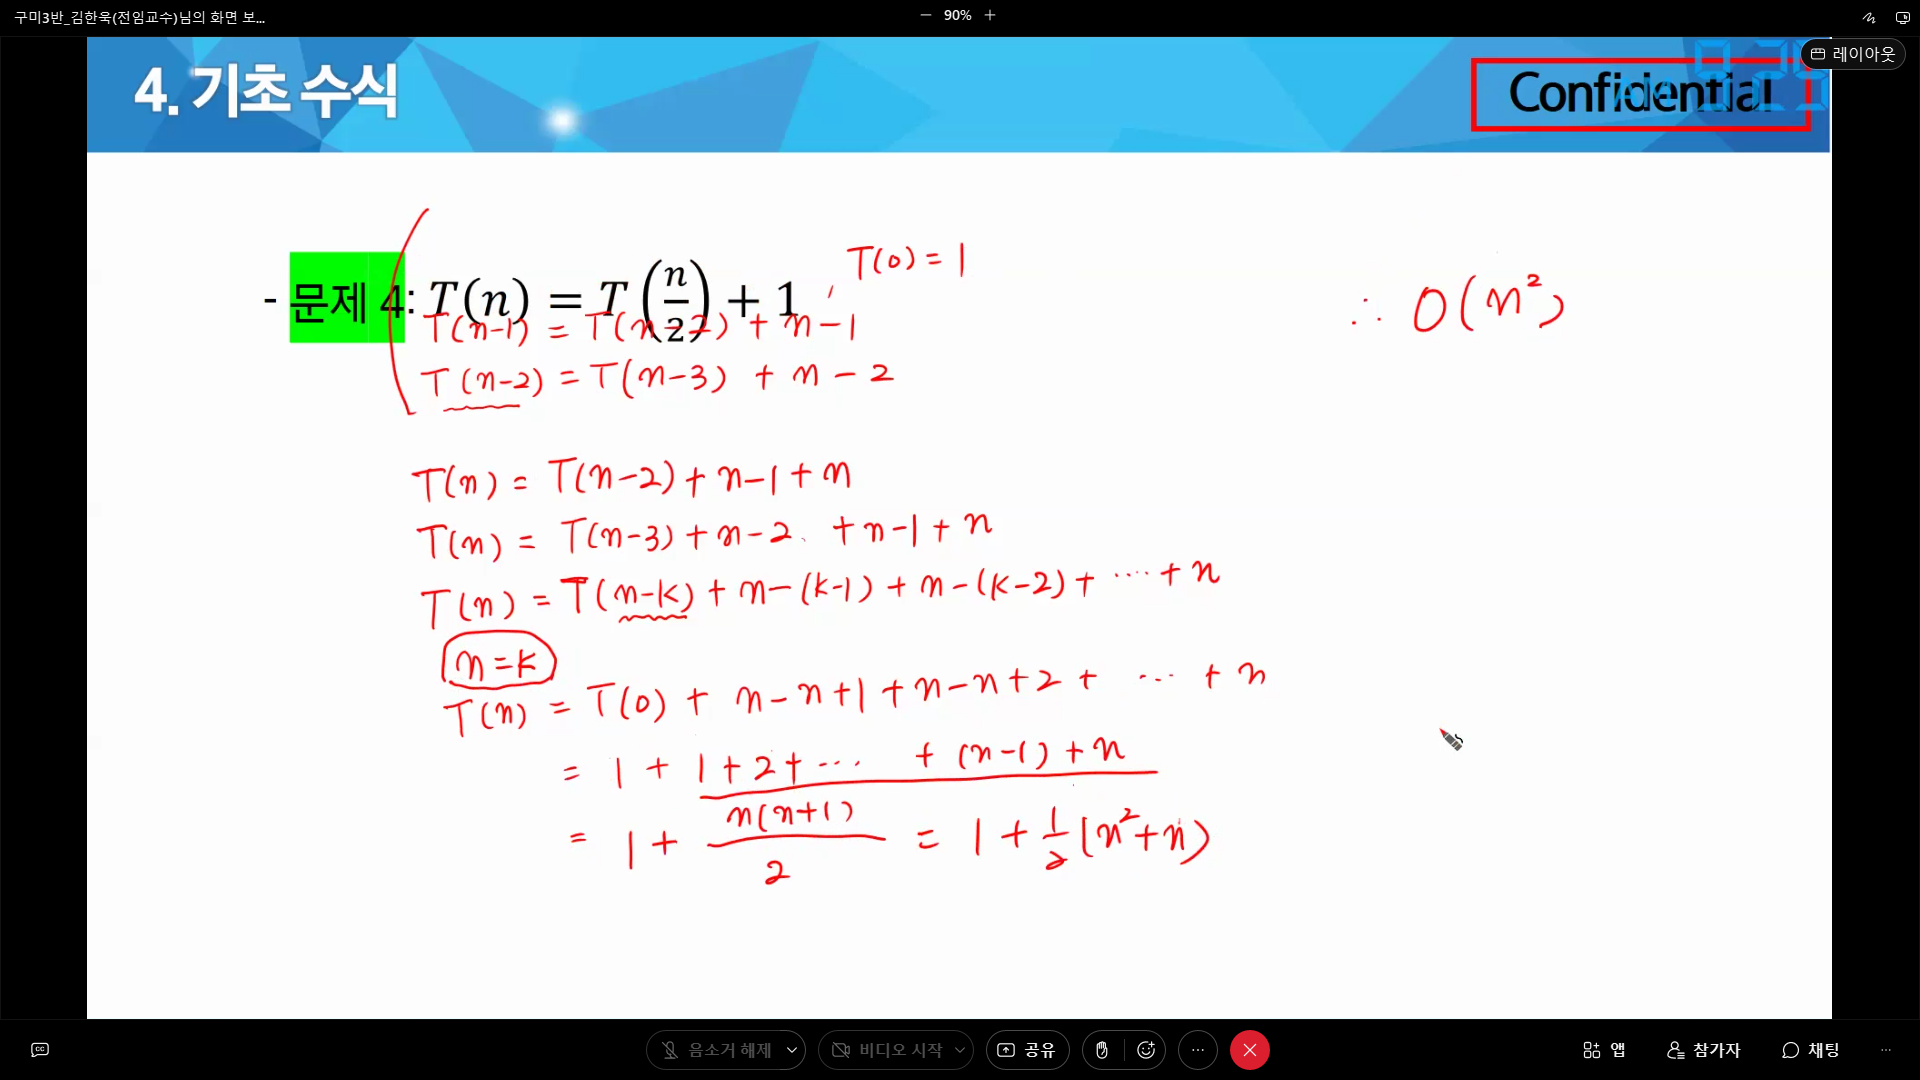 구미3반_김한욱(전임교수)님의 화면 보...
90%
레이아웃
4. 기초 수식
Confidential
- 문제 4: T(n) = T(n/2) + 1, T(0) = 1
T(n-1) = T(n-2) + n-1
T(n-2) = T(n-3) + n-2
∴ O(n²)
T(n) = T(n-2) + n-1 + n
T(n) = T(n-3) + n-2 + n-1 + n
T(n) = T(n-k) + n-(k-1) + n-(k-2) + ···· + n
n=k
T(n) = T(0) + n-n+1 + n-n+2 + ··· + n
= 1 + 1+2+ ··· + (n-1) + n
= 1 + n(n+1)/2 = 1 + 1/2(n²+n)
음소거 해제
비디오 시작
공유
앱
참가자
채팅